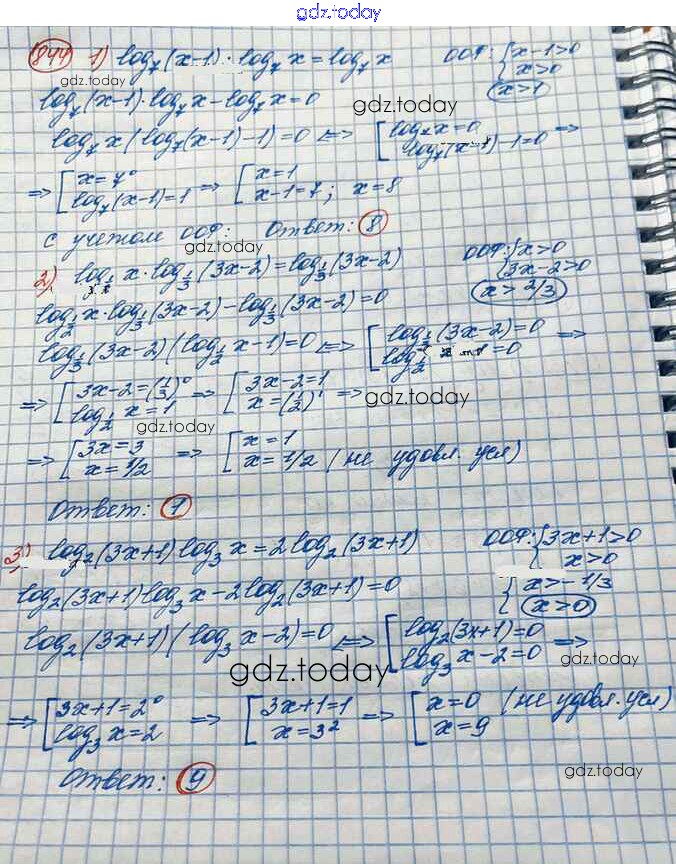 gdz.today
844 1) log₇(x-1)·log₇x=log₇x ООФ: { x-1>0
x>0
gdz.today x>1
log₇(x-1)·log₇x-log₇x=0 gdz.today
log₇x(log₇(x-1)-1)=0 <=> [ log₇x=0
log₇(x-1)-1=0 =>
=> [ x=7⁰ => [ x=1
log₇(x-1)=1 x-1=7; x=8
с учетом ООФ: Ответ: 8
gdz.today
2) log_{1/2}x·log_{1/3}(3x-2)=log_{1/3}(3x-2) ООФ: { x>0
3x-2>0
x>2/3
log_{1/2}x·log_{1/3}(3x-2)-log_{1/3}(3x-2)=0
log_{1/3}(3x-2)(log_{1/2}x-1)=0 <=> [ log_{1/3}(3x-2)=0 =>
log_{1/2} =0
=> [ 3x-2=(1/3)⁰ => [ 3x-2=1 =>
log_{1/2}x=1 x=(1/2)¹ gdz.today
=> [ 3x=3 => [ x=1
x=1/2 x=1/2 (не удовл. усл)
gdz.today
Ответ: 1
gdz.today
3) log₂(3x+1)log₃x=2log₂(3x+1) ООФ: { 3x+1>0
x>0
gdz.today
log₂(3x+1)log₃x-2log₂(3x+1)=0 { x>-1/3
x>0
log₂(3x+1)(log₃x-2)=0 <=> [ log₂(3x+1)=0 =>
log₃x-2=0
gdz.today gdz.today
=> [ 3x+1=2⁰ => [ 3x+1=1 => [ x=0 (не удовл. усл)
log₃x=2 x=3² x=9
Ответ: 9 gdz.today
gdz.today